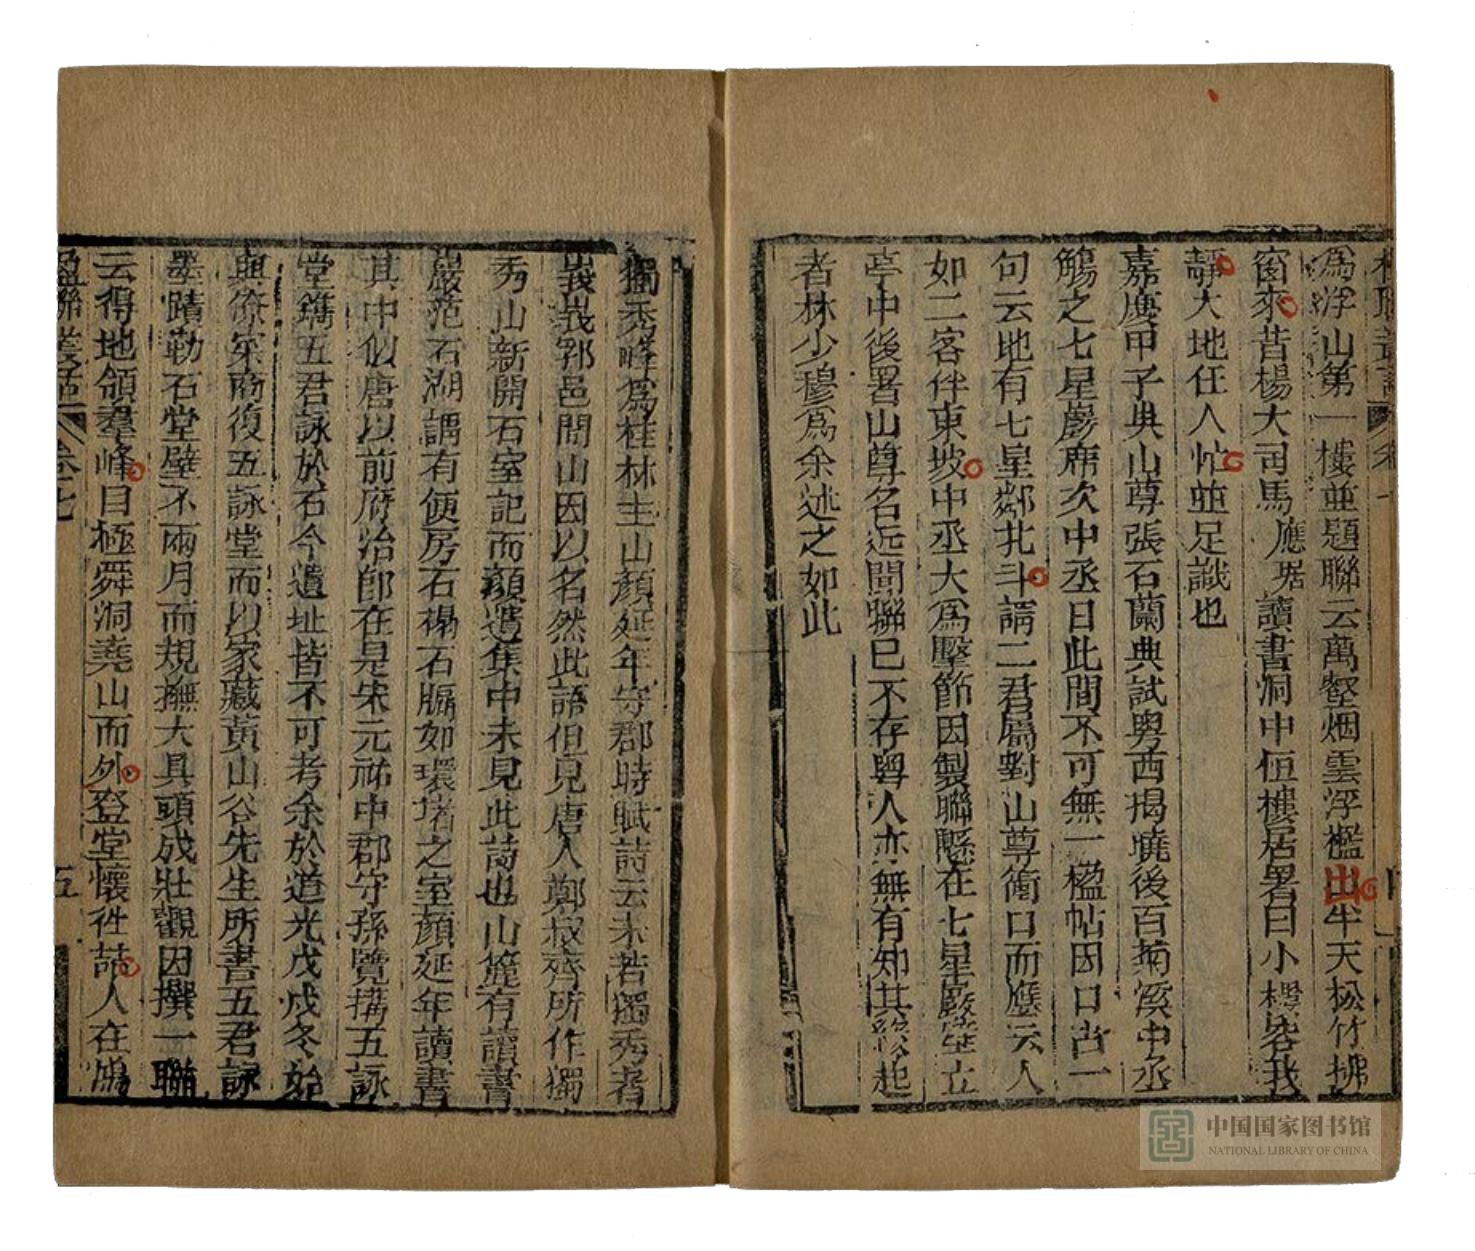 為浮山第一樓並題聯云萬壑烟雲浮檻出半天松竹拂
窗來昔楊大司馬應琚讀書洞中恒樓居署曰小樓容我
靜大地任人忙並足識也
嘉慶甲子典山尊張石蘭典試粵西揭曉後百菊溪中丞
觴之七星巖席次中丞曰此間不可無一楹帖因口占一
句云地有七星鄰北斗請二君屬對山尊衝口而應云人
如二客伴東坡中丞大為擊節因製聯懸在七星巖壁立
亭中後署山尊名近聞聯已不存粵人亦無有知其緣起
者林少穆為余述之如此
獨秀峰為桂林主山顏延年守郡時賦詩云未若獨秀者
峩峩郛邑間山因以名然此語但見唐人鄭叔齊所作獨
秀山新開石室記而顏遺集中未見此詩也山麓有讀書
巖范石湖謂有便房石榻石牖如環堵之室顏延年讀書
其中似唐以前府治卽在是宋元祐中郡守孫覽搆五詠
堂鐫五君詠於石今遺址皆不可考余於道光戊戌冬始
與僚寀商復五詠堂而以家藏黃山谷先生所書五君詠
墨蹟勒石堂壁不兩月而規撫大具頭成壯觀因撰一聯
云得地領羣峰目極舜洞堯山而外登堂懷往喆人在鴻
楹聯叢話
卷七
五
中国国家图书馆
NATIONAL LIBRARY OF CHINA